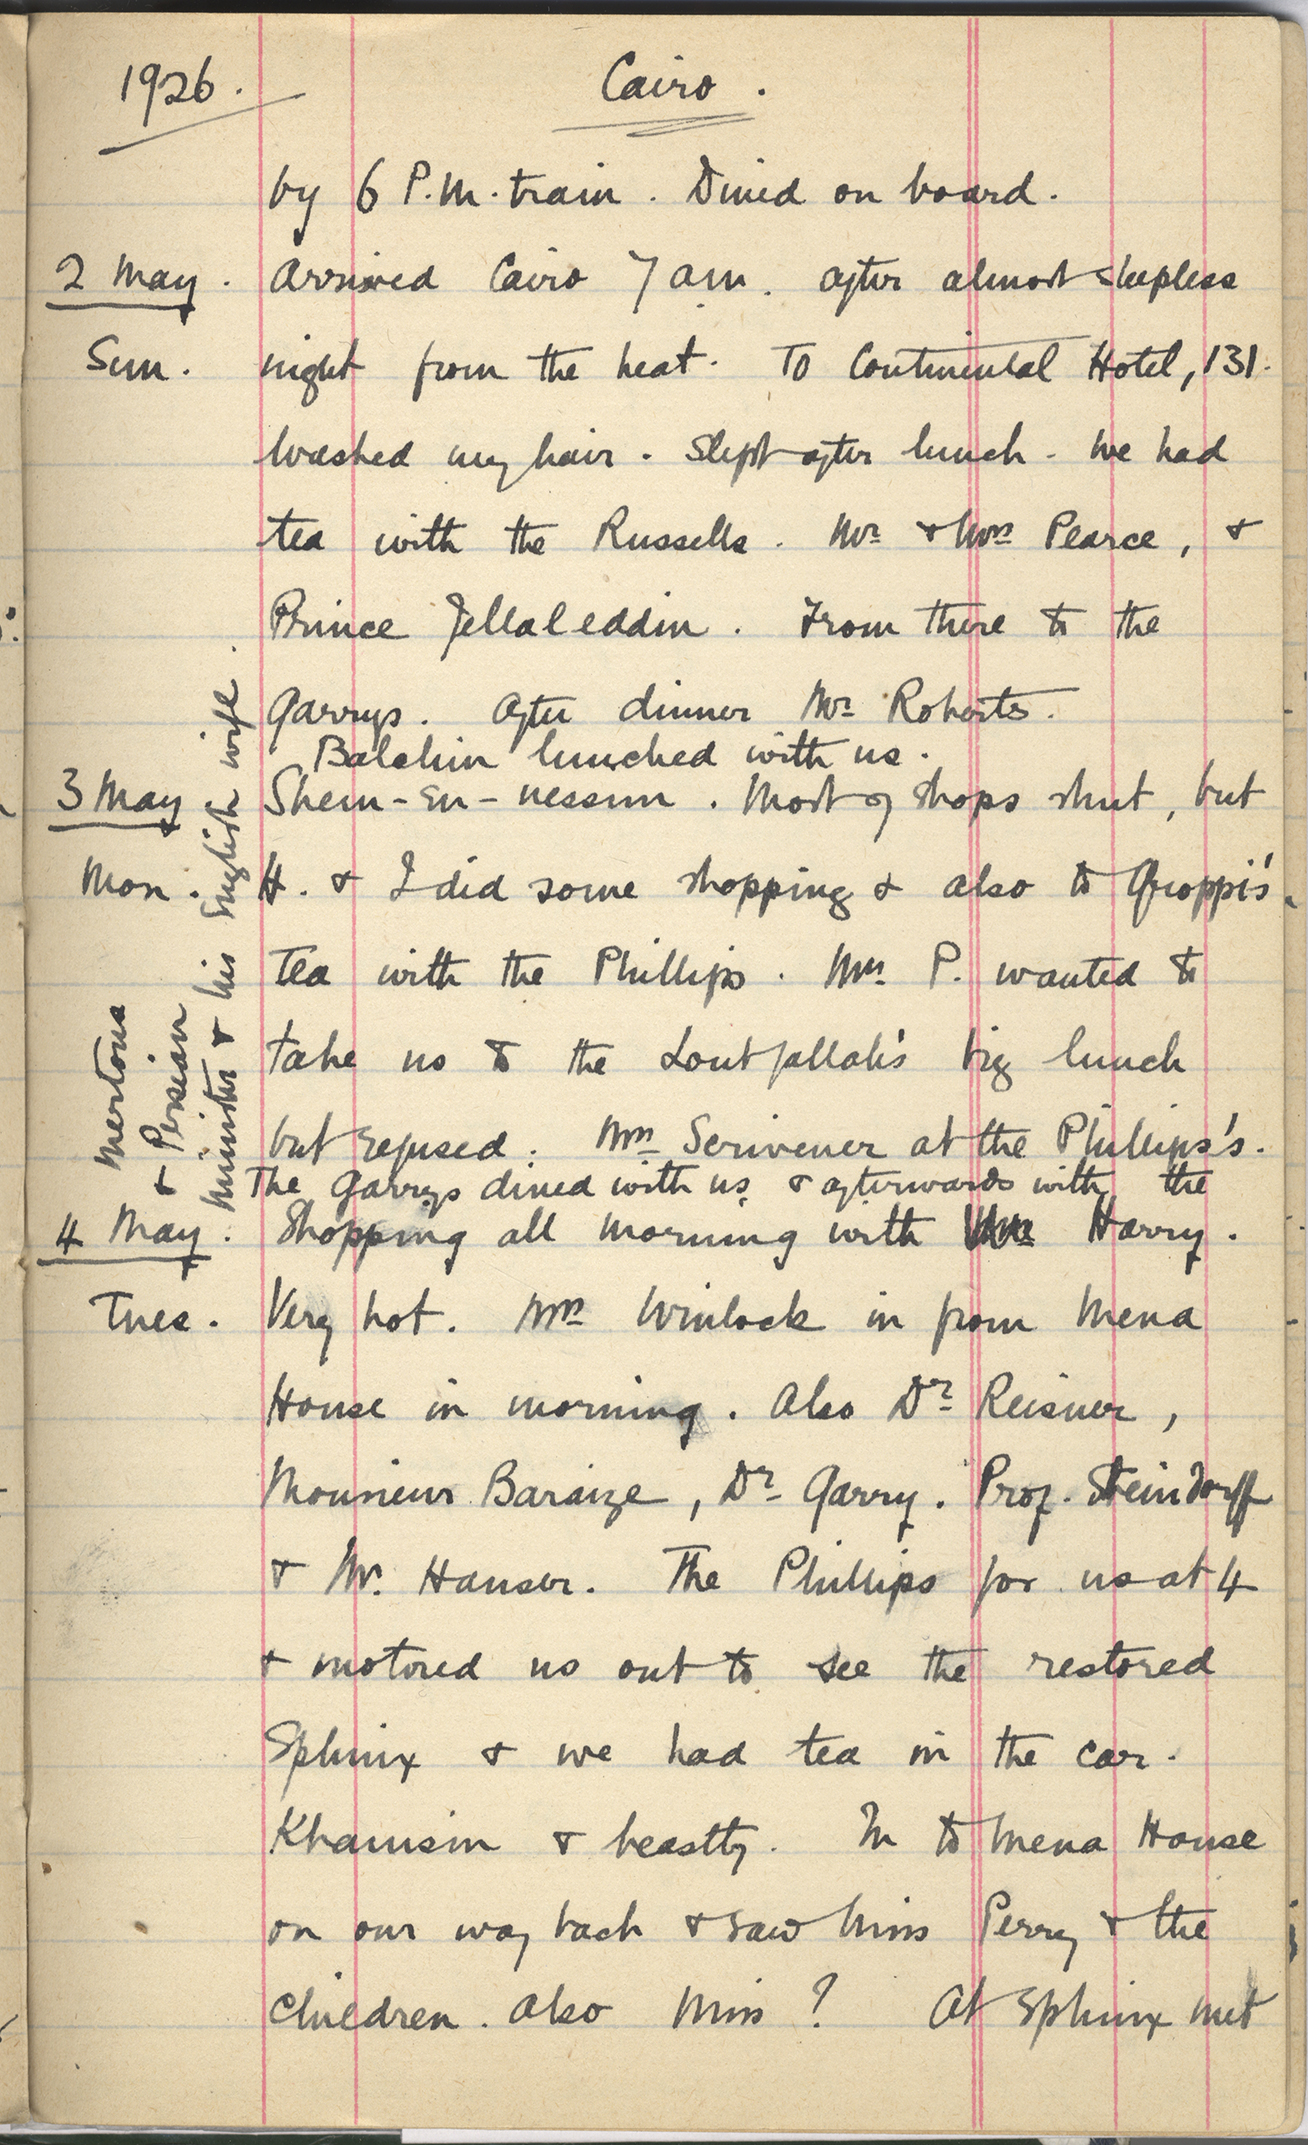 1926.
Cairo.
by 6 P.M. train. Dined on board.
2 May. Arrived Cairo 7 am. after almost sleepless
Sun. night from the heat. To Continental Hotel, 131.
Washed my hair. Slept after lunch. We had
tea with the Russells. Mr & Mrs Pearce, &
Prince Jellaleddin. From there to the
Garrys. After dinner Mr Roberts.
Balchin lunched with us.
3 May Shem-en-nessim. Most of shops shut, but
Mon. H. & I did some shopping & also to Groppi's.
Tea with the Phillips. Mrs P. wanted to
take us to the Loutfallah's big lunch
but refused. Mrs Scrivener at the Phillips's.
The Garrys dined with us & afterwards with the
Mertons
& Persian
Minister & his English wife.
4 May. Shopping all morning with Harry.
Tues. Very hot. Mrs Winlock in from Mena
House in morning. Also Dr Reisner,
Monsieur Baraize, Dr Garry. Prof. Steindorff
& Mr. Hauser. The Phillips for us at 4
& motored us out to see the restored
Sphinx & we had tea in the car.
Khamsin & beastly. In to Mena House
on our way back & saw Miss Perry & the
children. Also Miss ? At Sphinx met